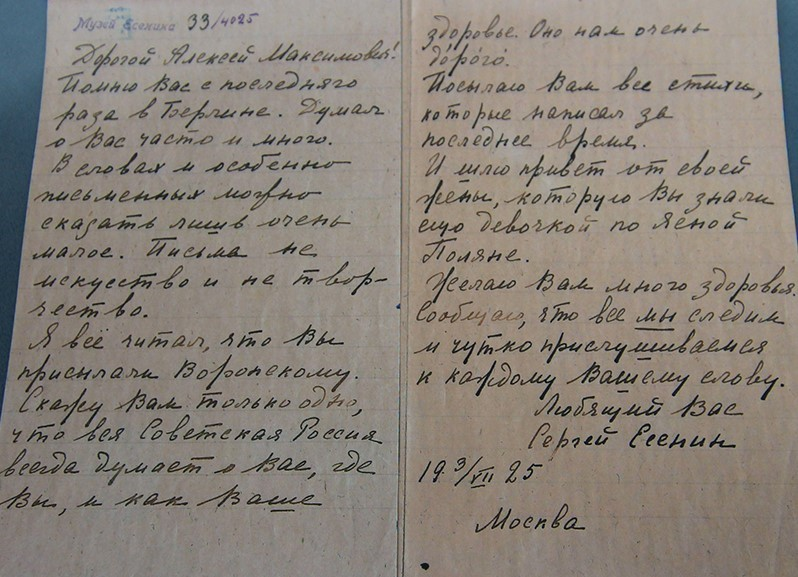 Музей Есенина 33/4025
Дорогой Алексей Максимович!
Помню Вас с последняго
раза в Берлине. Думал
о Вас часто и много.
В словах и особенно
письменных можно
сказать лишь очень
малое. Письма не
искусство и не твор-
чество.
Я всё читал, что Вы
присылали Воронскому.
Скажу Вам только одно,
что вся Советская Россия
всегда думает о Вас, где
Вы, и как Ваше
здоровье. Оно нам очень
дорого.
Посылаю Вам все стихи,
которые написал за
последнее время.
И шлю привет от своей
жены, которую Вы знали
ещо девочкой по Ясной
Поляне.
Желаю Вам много здоровья.
Сообщаю, что все мы следим
и чутко прислушиваемся
к каждому Вашему слову.
Любящий Вас
Сергей Есенин
19 3/VII 25
Москва